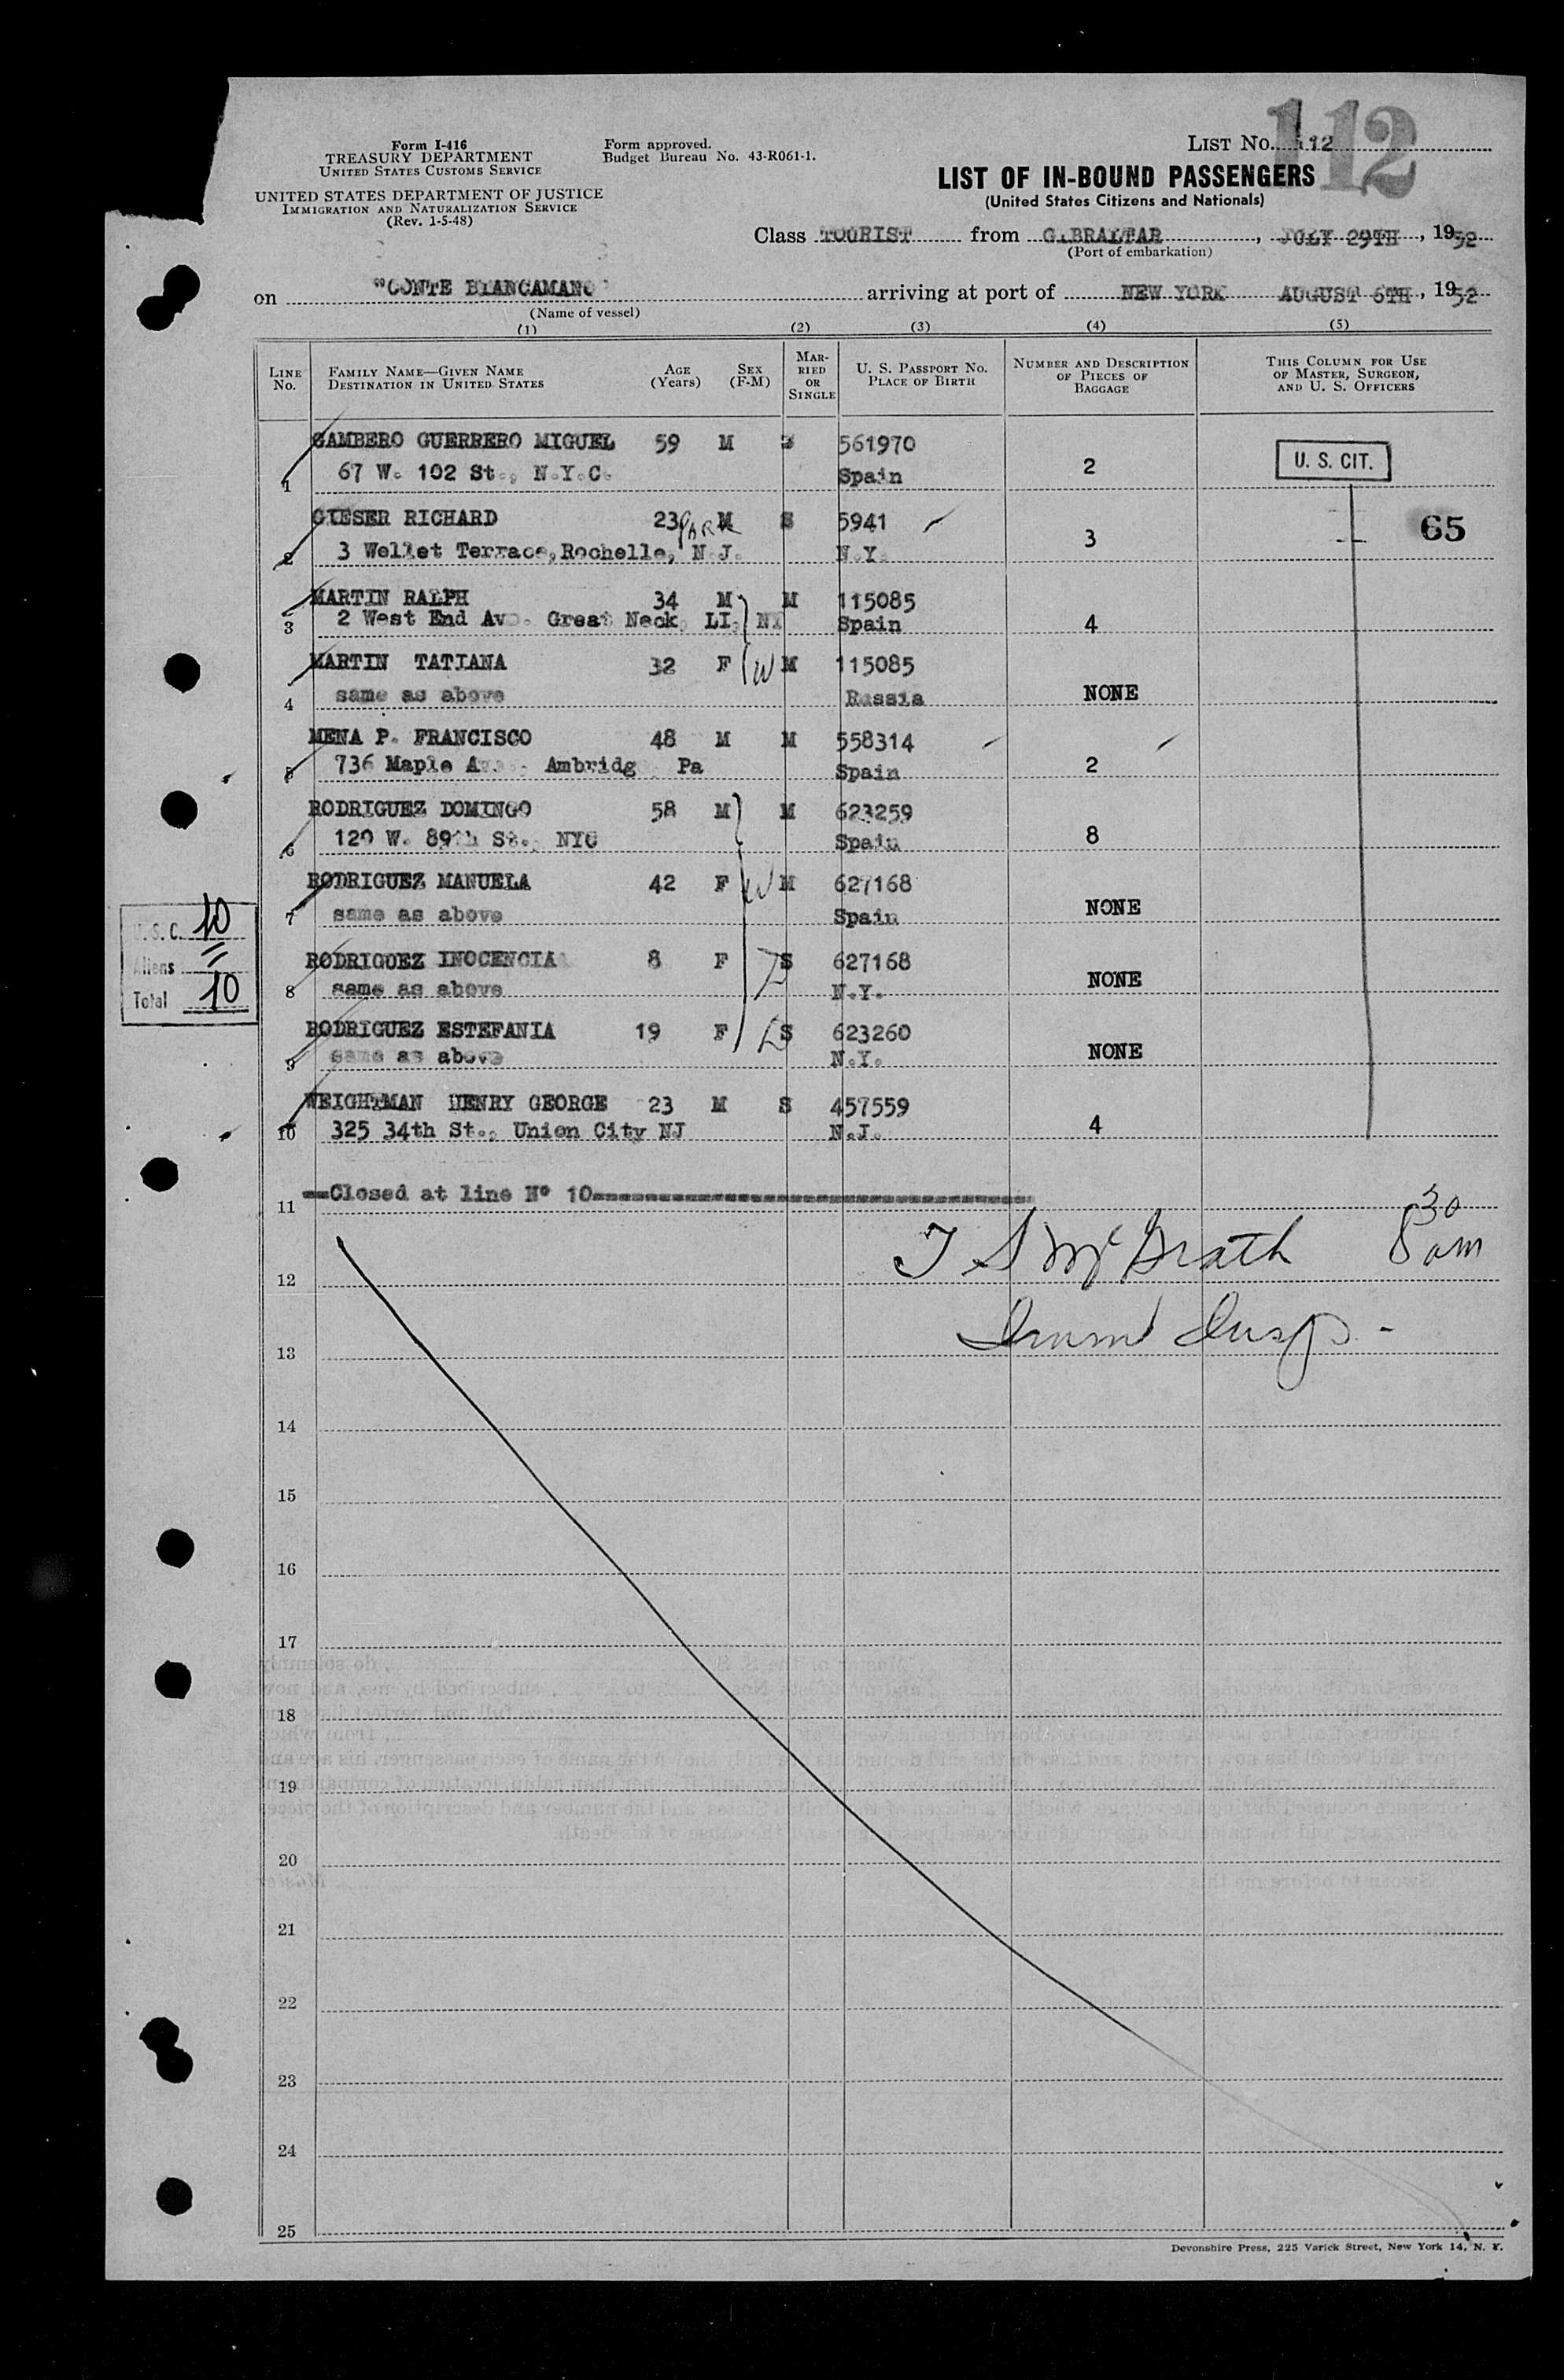 112
Form I-416
TREASURY DEPARTMENT
UNITED STATES CUSTOMS SERVICE
UNITED STATES DEPARTMENT OF JUSTICE
IMMIGRATION AND NATURALIZATION SERVICE
(Rev. 1-5-48)
Form approved.
Budget Bureau No. 43-R061-1.
LIST NO. 112
LIST OF IN-BOUND PASSENGERS
(United States Citizens and Nationals)
Class TOURIST from GIBRALTAR, JULY 29TH, 1952
(Port of embarkation)
on "CONTE BIANCAMANO" arriving at port of NEW YORK AUGUST 6TH, 1952
(Name of vessel)
(1) (2) (3) (4) (5)
LINE No. FAMILY NAME—GIVEN NAME DESTINATION IN UNITED STATES AGE (Years) SEX (F-M) MARRIED OR SINGLE U. S. PASSPORT NO. PLACE OF BIRTH NUMBER AND DESCRIPTION OF PIECES OF BAGGAGE THIS COLUMN FOR USE OF MASTER, SURGEON, AND U. S. OFFICERS
GAMBERO GUERRERO MIGUEL 59 M 561970
1 67 W. 102 St., N.Y.C. Spain 2 U. S. CIT.
GIESER RICHARD 23 M S 5941 65
PARK
2 3 Wellet Terrace, Rochelle, N.J. N.Y. 3
MARTIN RALPH 34 M M 115085
3 2 West End Av. Great Neck, LI, NY Spain 4
MARTIN TATIANA 32 F W M 115085
4 same as above Russia NONE
MENA P. FRANCISCO 48 M M 558314
5 736 Maple A Ambridg Pa Spain 2
RODRIGUEZ DOMINGO 58 M M 623259
6 120 W. 89th St., NYC Spain 8
RODRIGUEZ MANUELA 42 F W M 627168
7 same as above Spain NONE
RODRIGUEZ INOCENCIA 8 F S 627168
8 same as above N.Y. NONE
RODRIGUEZ ESTEFANIA 19 F S 623260
9 same as above N.Y. NONE
WEIGHTMAN HENRY GEORGE 23 M S 457559
10 325 34th St., Union City NJ N.J. 4
U. S. C. 10
Aliens =
Total 10
11 Closed at line Nº 10
12 T S McGrath 8 30 am
13 Imm Insp.
14
15
16
17
18
19
20
21
22
23
24
25
Devonshire Press, 225 Varick Street, New York 14, N. Y.